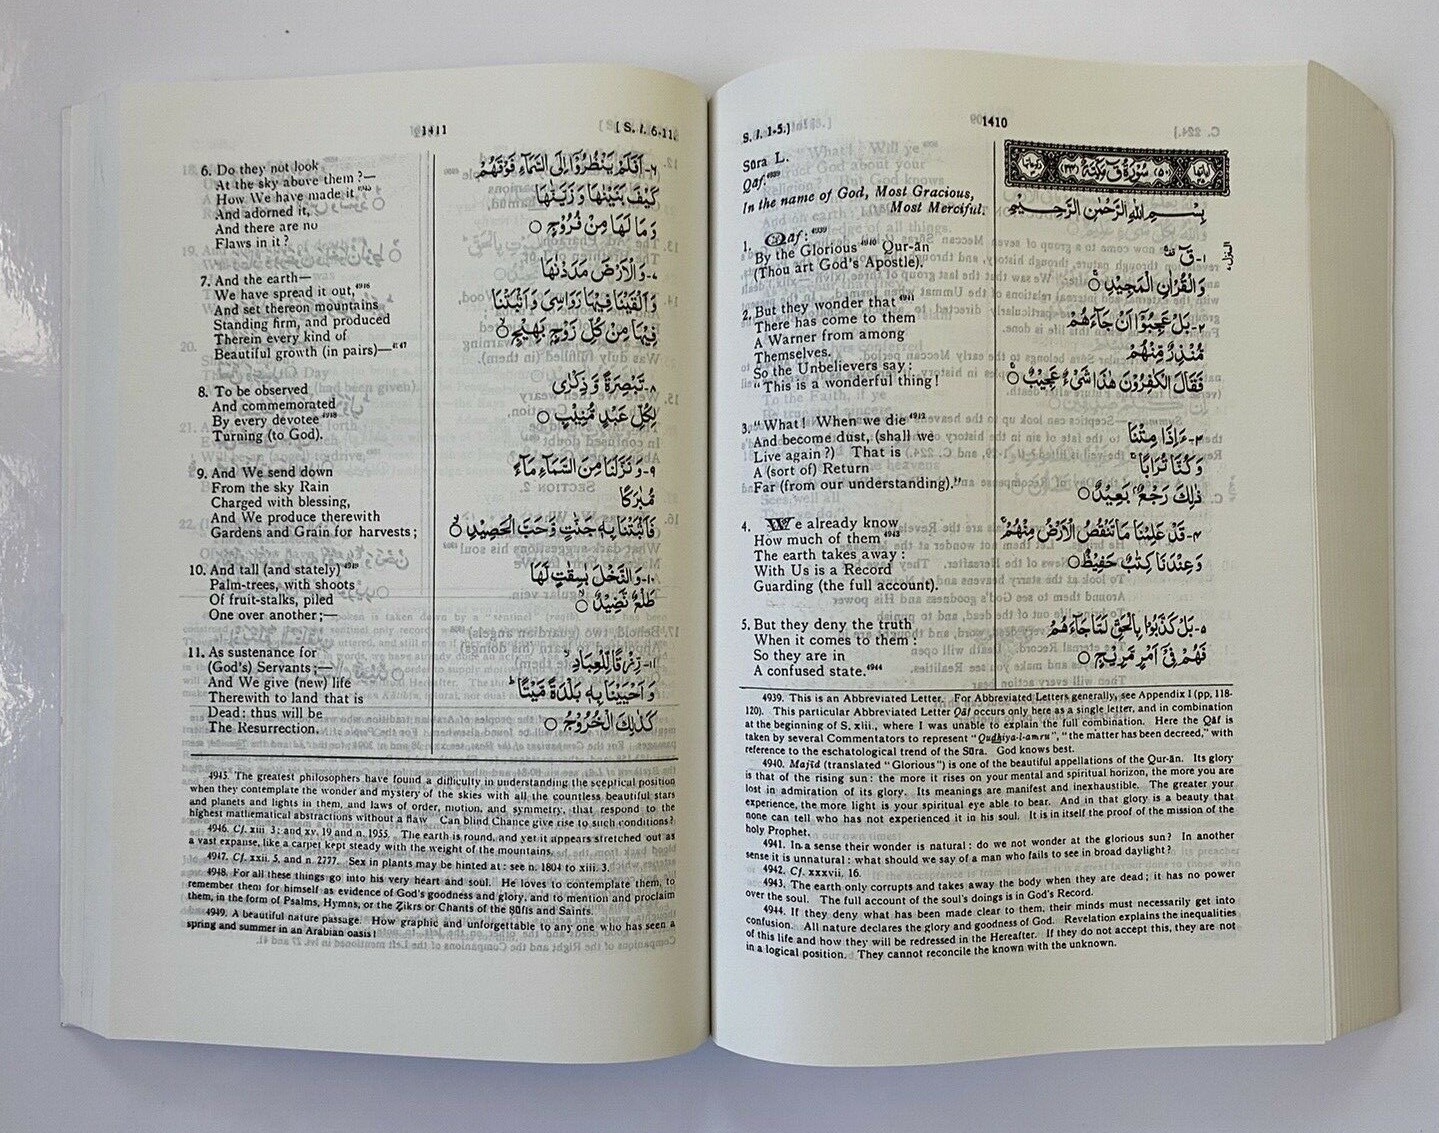 S. l. 1-5.]
1410
Sūra L.
Qāf.⁴⁹³⁹
In the name of God, Most Gracious,
Most Merciful.
1. Qāf: ⁴⁹³⁹
By the Glorious ⁴⁹⁴⁰ Qur-ān
(Thou art God's Apostle).
2. But they wonder that ⁴⁹⁴¹
There has come to them
A Warner from among
Themselves.
So the Unbelievers say:
"This is a wonderful thing!
3. "What! When we die ⁴⁹⁴²
And become dust, (shall we
Live again?) That is
A (sort of) Return
Far (from our understanding)."
4. We already know
How much of them ⁴⁹⁴³
The earth takes away:
With Us is a Record
Guarding (the full account).
5. But they deny the truth
When it comes to them:
So they are in
A confused state.⁴⁹⁴⁴
سُوْرَةُ قٓ مَكِّيَّةٌ
بِسْمِ اللهِ الرَّحْمٰنِ الرَّحِيْمِ
١- قٓ
وَالْقُرْاٰنِ الْمَجِيْدِ ○
٢- بَلْ عَجِبُوْٓا اَنْ جَآءَهُمْ
مُّنْذِرٌ مِّنْهُمْ
فَقَالَ الْكٰفِرُوْنَ هٰذَا شَىْءٌ عَجِيْبٌ ○
٣- ءَاِذَا مِتْنَا
وَكُنَّا تُرَابًا
ذٰلِكَ رَجْعٌۢ بَعِيْدٌ ○
٤- قَدْ عَلِمْنَا مَا تَنْقُصُ الْاَرْضُ مِنْهُمْ
وَعِنْدَنَا كِتٰبٌ حَفِيْظٌ ○
٥- بَلْ كَذَّبُوْا بِالْحَقِّ لَمَّا جَآءَهُمْ
فَهُمْ فِىْٓ اَمْرٍ مَّرِيْجٍ ○
4939. This is an Abbreviated Letter. For Abbreviated Letters generally, see Appendix I (pp. 118-
120). This particular Abbreviated Letter Qāf occurs only here as a single letter, and in combination
at the beginning of S. xlii., where I was unable to explain the full combination. Here the Qāf is
taken by several Commentators to represent "Qudhiya-l-amru", "the matter has been decreed," with
reference to the eschatological trend of the Sūra. God knows best.
4940. Majīd (translated "Glorious") is one of the beautiful appellations of the Qur-ān. Its glory
is that of the rising sun: the more it rises on your mental and spiritual horizon, the more you are
lost in admiration of its glory. Its meanings are manifest and inexhaustible. The greater your
experience, the more light is your spiritual eye able to bear. And in that glory is a beauty that
none can tell who has not experienced it in his soul. It is in itself the proof of the mission of the
holy Prophet.
4941. In a sense their wonder is natural: do we not wonder at the glorious sun? In another
sense it is unnatural: what should we say of a man who fails to see in broad daylight?
4942. Cf. xxxvii. 16.
4943. The earth only corrupts and takes away the body when they are dead; it has no power
over the soul. The full account of the soul's doings is in God's Record.
4944. If they deny what has been made clear to them, their minds must necessarily get into
confusion. All nature declares the glory and goodness of God. Revelation explains the inequalities
of this life and how they will be redressed in the Hereafter. If they do not accept this, they are not
in a logical position. They cannot reconcile the known with the unknown.
1411
[S. l. 6-11.
6. Do they not look
At the sky above them?—
How We have made it ⁴⁹⁴⁵
And adorned it,
And there are no
Flaws in it?
7. And the earth—
We have spread it out,⁴⁹⁴⁶
And set thereon mountains
Standing firm, and produced
Therein every kind of
Beautiful growth (in pairs)—⁴⁹⁴⁷
8. To be observed
And commemorated
By every devotee ⁴⁹⁴⁸
Turning (to God).
9. And We send down
From the sky Rain
Charged with blessing,
And We produce therewith
Gardens and Grain for harvests;
10. And tall (and stately) ⁴⁹⁴⁹
Palm-trees, with shoots
Of fruit-stalks, piled
One over another;—
11. As sustenance for
(God's) Servants;—
And We give (new) life
Therewith to land that is
Dead: thus will be
The Resurrection.
٦- اَفَلَمْ يَنْظُرُوْٓا اِلَى السَّمَآءِ فَوْقَهُمْ
كَيْفَ بَنَيْنٰهَا وَزَيَّنّٰهَا
وَمَا لَهَا مِنْ فُرُوْجٍ ○
٧- وَالْاَرْضَ مَدَدْنٰهَا
وَاَلْقَيْنَا فِيْهَا رَوَاسِىَ وَاَنْۢبَتْنَا
فِيْهَا مِنْ كُلِّ زَوْجٍۭ بَهِيْجٍ ○
٨- تَبْصِرَةً وَّذِكْرٰى
لِكُلِّ عَبْدٍ مُّنِيْبٍ ○
٩- وَنَزَّلْنَا مِنَ السَّمَآءِ مَآءً
مُّبٰرَكًا
فَاَنْۢبَتْنَا بِهٖ جَنّٰتٍ وَّحَبَّ الْحَصِيْدِ ○
١٠- وَالنَّخْلَ بٰسِقٰتٍ لَّهَا
طَلْعٌ نَّضِيْدٌ ○
١١- رِّزْقًا لِّلْعِبَادِ
وَاَحْيَيْنَا بِهٖ بَلْدَةً مَّيْتًا
كَذٰلِكَ الْخُرُوْجُ ○
4945. The greatest philosophers have found a difficulty in understanding the sceptical position
when they contemplate the wonder and mystery of the skies with all the countless beautiful stars
and planets and lights in them, and laws of order, motion, and symmetry, that respond to the
highest mathematical abstractions without a flaw. Can blind Chance give rise to such conditions?
4946. Cf. xiii. 3; and xv. 19 and n. 1955. The earth is round, and yet it appears stretched out as
a vast expanse, like a carpet kept steady with the weight of the mountains.
4947. Cf. xxii. 5, and n. 2777. Sex in plants may be hinted at: see n. 1804 to xiii. 3.
4948. For all these things go into his very heart and soul. He loves to contemplate them, to
remember them for himself as evidence of God's goodness and glory, and to mention and proclaim
them, in the form of Psalms, Hymns, or the Zikrs or Chants of the Sūfis and Saints.
4949. A beautiful nature passage. How graphic and unforgettable to any one who has seen a
spring and summer in an Arabian oasis!